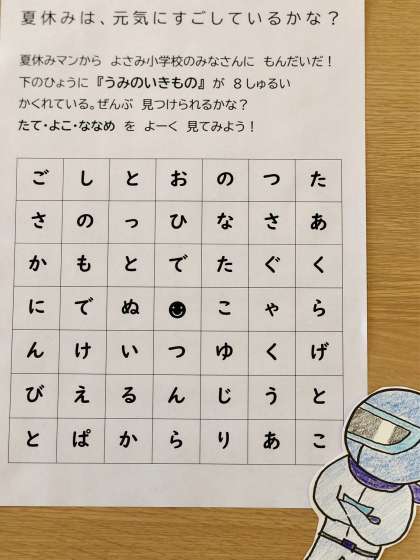 夏休みは、元気にすごしているかな？
夏休みマンから よさみ小学校のみなさんに もんだいだ！
下のひょうに『うみのいきもの』が ８しゅるい
かくれている。ぜんぶ 見つけられるかな？
たて・よこ・ななめ を よーく 見てみよう！
ご し と お の つ た
さ の っ ひ な さ あ
か も と で た ぐ く
に で ぬ ☻ こ ゃ ら
ん け い つ ゆ く げ
び え る ん じ う と
と ぱ か ら り あ こ